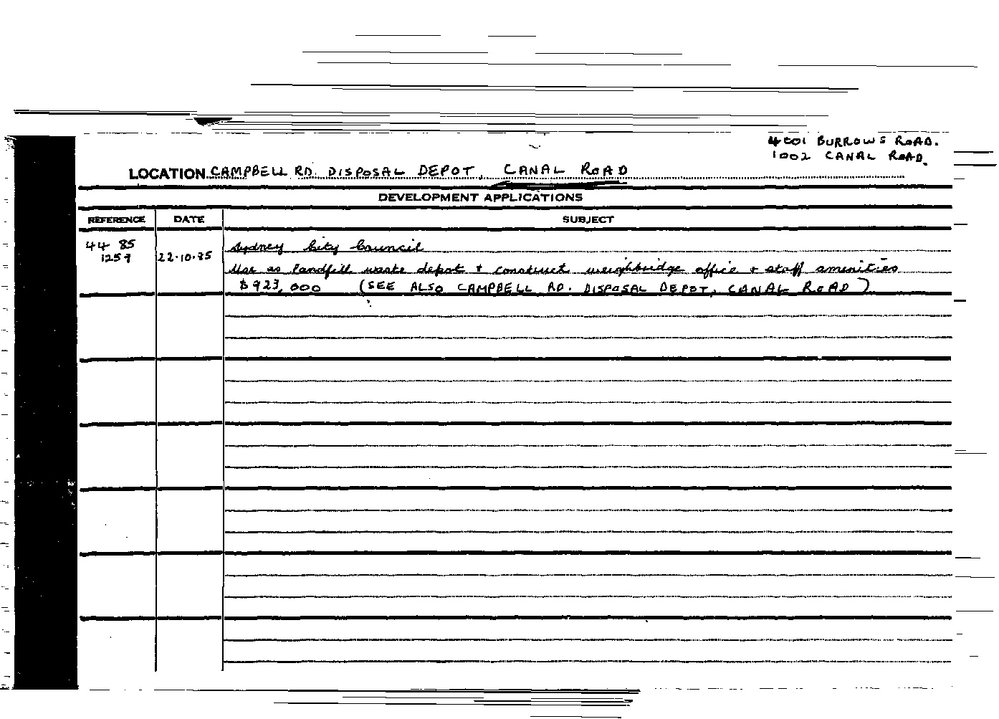 4001 BURROWS ROAD.
1002 CANAL ROAD.
LOCATION CAMPBELL RD. DISPOSAL DEPOT, CANAL ROAD
DEVELOPMENT APPLICATIONS
REFERENCE DATE SUBJECT
44 85 Sydney City Council
1259 22.10.85
Use as landfill waste depot & construct weighbridge office & staff amenities
$923,000 (SEE ALSO CAMPBELL RD. DISPOSAL DEPOT, CANAL ROAD)